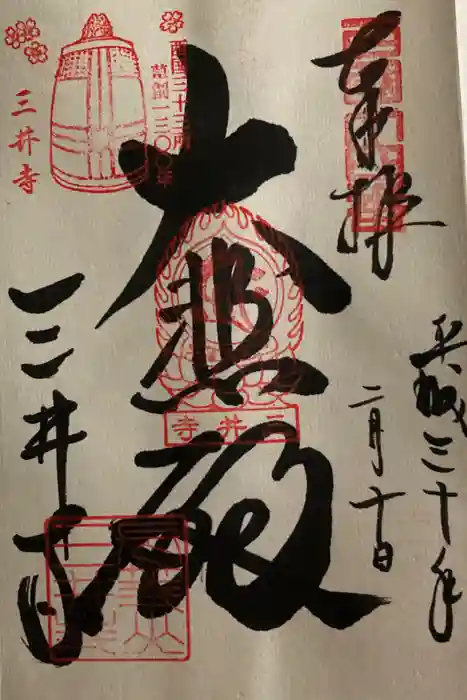 奉拝
平成三十年
二月十日
大悲殿
三井寺
三井寺
西國三十三所
草創一三〇〇年
三井寺